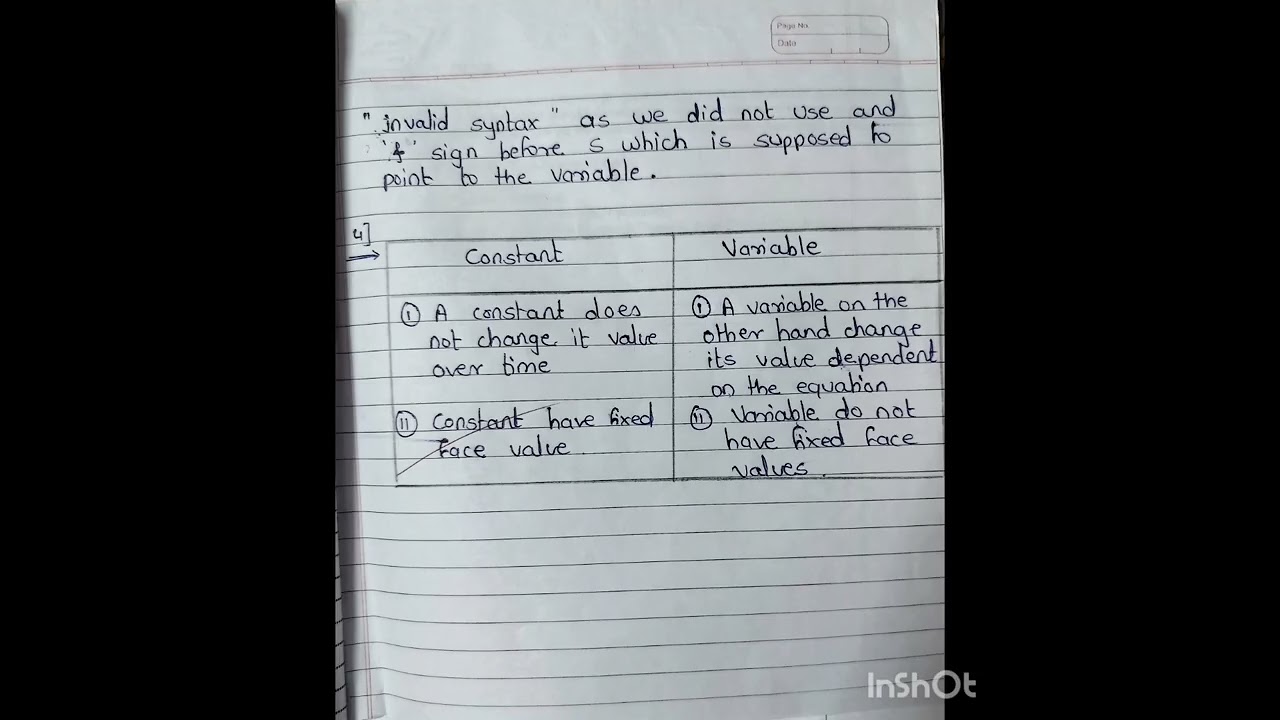 Page No.
Date
"invalid syntax" as we did not use and
'&' sign before s which is supposed to
point to the variable.
4]
Constant
Variable
(i) A constant does
not change it value
over time
(i) A variable on the
other hand change
its value dependent
on the equation
(ii) Constant have fixed
face value.
(ii) Variable do not
have fixed face
values.
InShOt